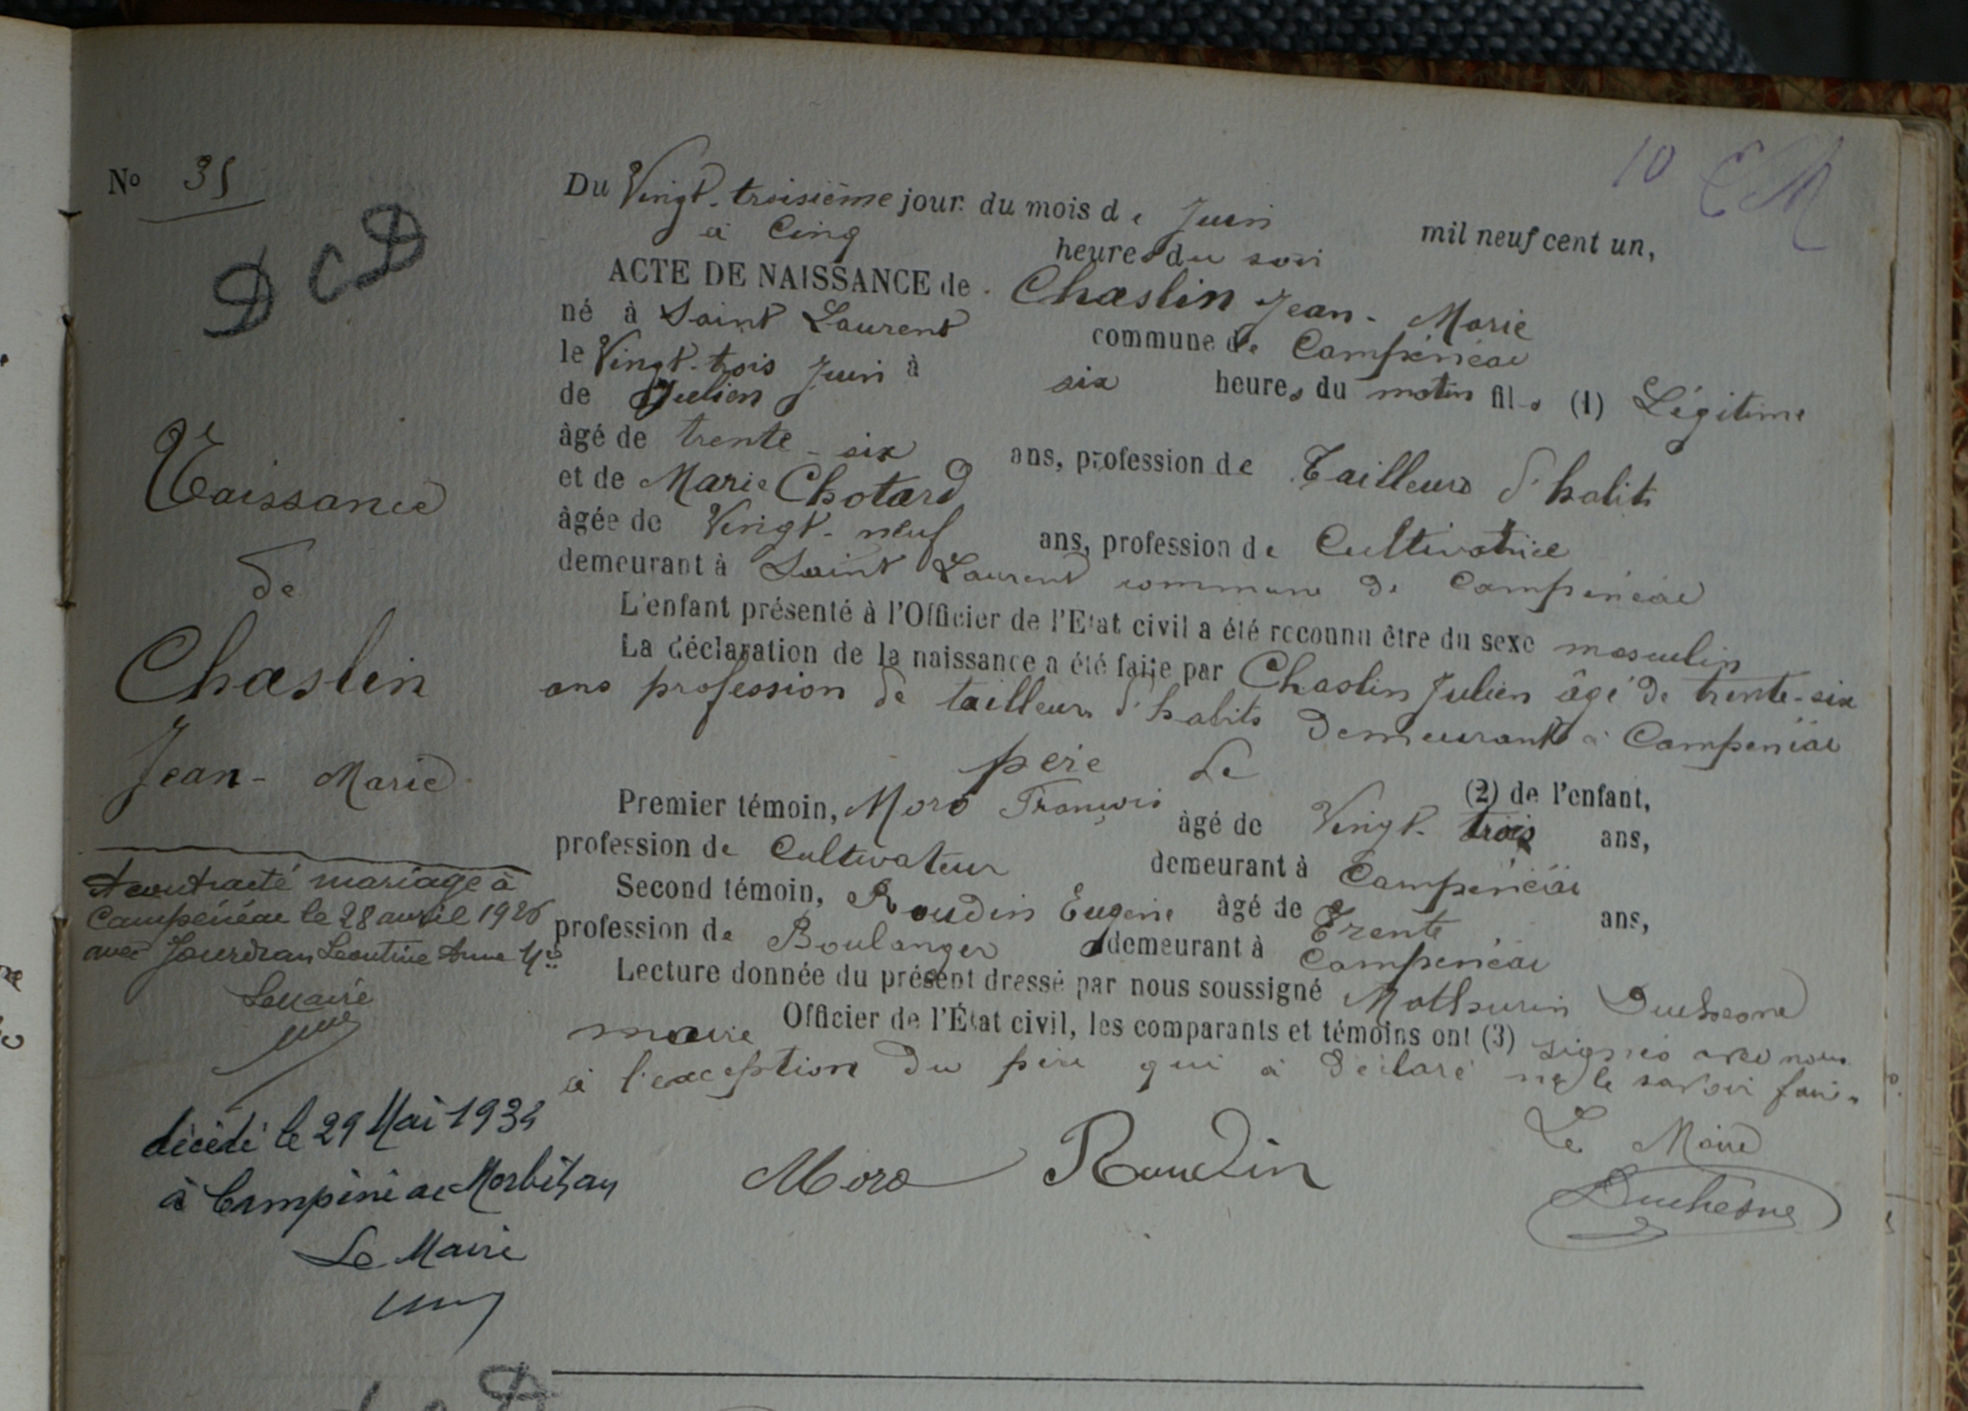 10 EM
No 35
DCD
Naissance
de
Chaslin
Jean-Marie
A contracté mariage à
Campénéac le 28 avril 1926
avec Jourdran Léontine Anne Mie
Le Maire
décédé le 29 Mai 1934
à Campénéac Morbihan
Le Maire
Du Vingt-troisième jour du mois de Juin mil neuf cent un,
à Cinq heures du soir
ACTE DE NAISSANCE de Chaslin Jean-Marie
né à Saint Laurent commune de Campénéac
le Vingt-trois Juin à six heures du matin fils (1) Légitime
de Julien
âgé de trente-six ans, profession de Tailleurs d'habits
et de Marie Chotard
âgée de Vingt-neuf ans, profession de Cultivatrice
demeurant à Saint Laurent commune de Campénéac
L'enfant présenté à l'Officier de l'Etat civil a été reconnu être du sexe masculin
La déclaration de la naissance a été faite par Chaslin Julien âgé de trente-six
ans profession de tailleurs d'habits demeurant à Campénéac
père de (2) de l'enfant,
Premier témoin, Moro François âgé de Vingt-trois ans,
profession de Cultivateur demeurant à Campénéac
Second témoin, Roudin Eugène âgé de Trente ans,
profession de Boulanger demeurant à Campénéac
Lecture donnée du présent dressé par nous soussigné Mathurin Duchesne
maire Officier de l'État civil, les comparants et témoins ont (3) signés avec nous
à l'exception du père qui à déclaré ne le savoir faire
Le Maire
Moro Roudin Duchesne